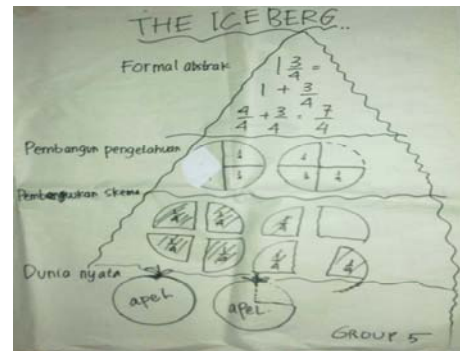 THE ICEBERG..
Formal abstrak
1 3/4 =
1 + 3/4
4/4 + 3/4 = 7/4
Pembangun pengetahuan
Pembangunkan skema
1/4 1/4 1/4
1/4 1/4 1/4 1/4
Dunia nyata
apel apel
GROUP 5